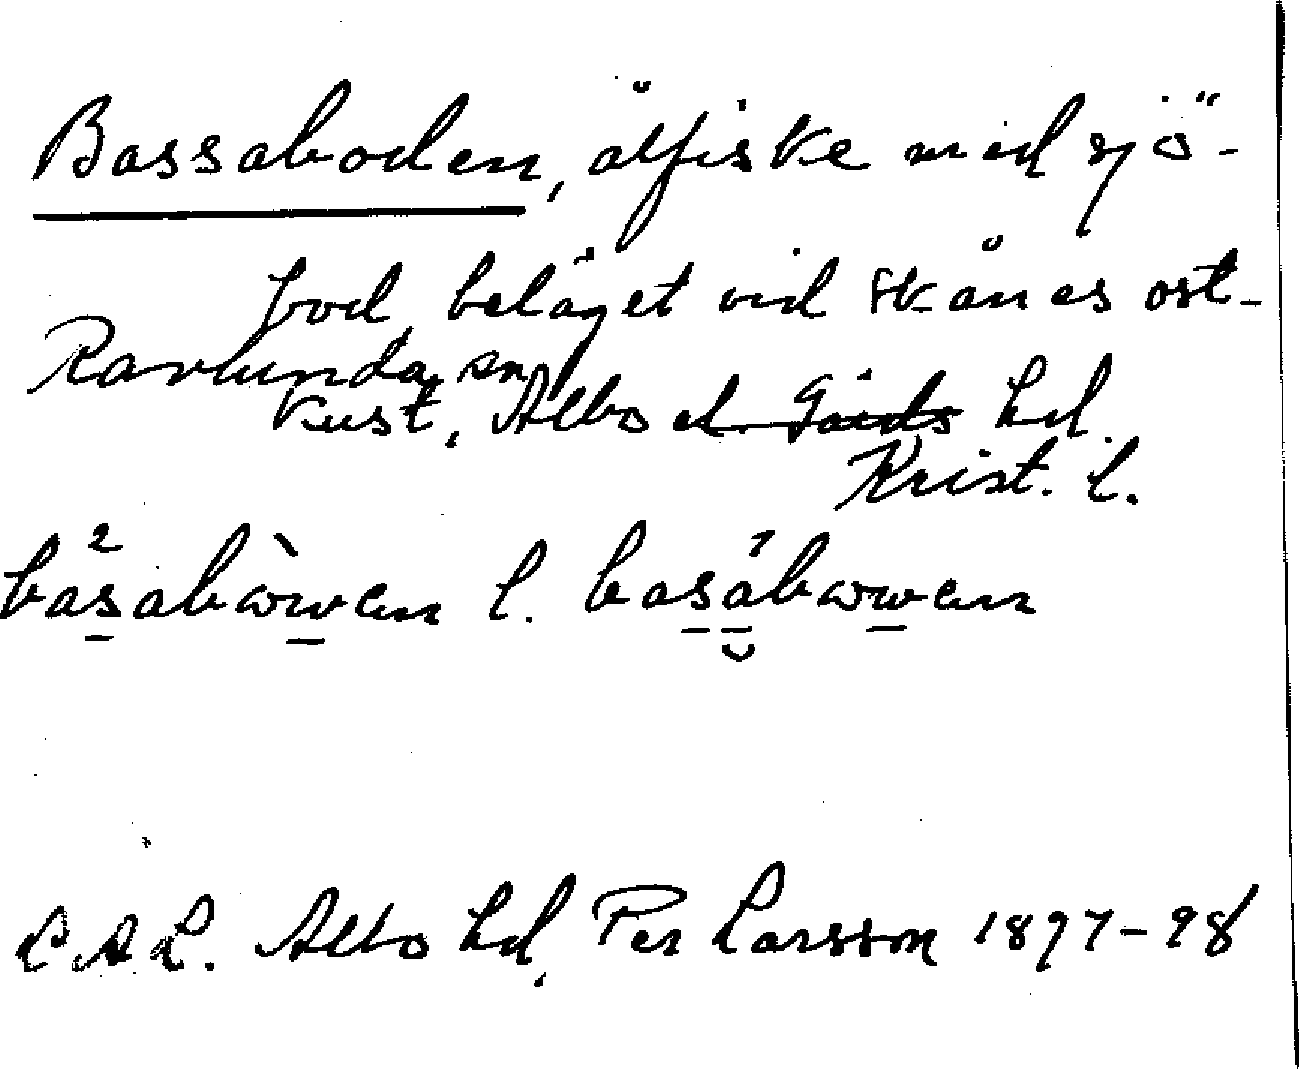 Bassaboden, ålfiske med sjö-
bod, beläget vid Skånes ost-
Ravlunda sn,
kust, Albo el. Gärds hd
Krist. l.
basabòwen l. basábowen
L.A.L. Albo hd, Per Larsson 1897-98